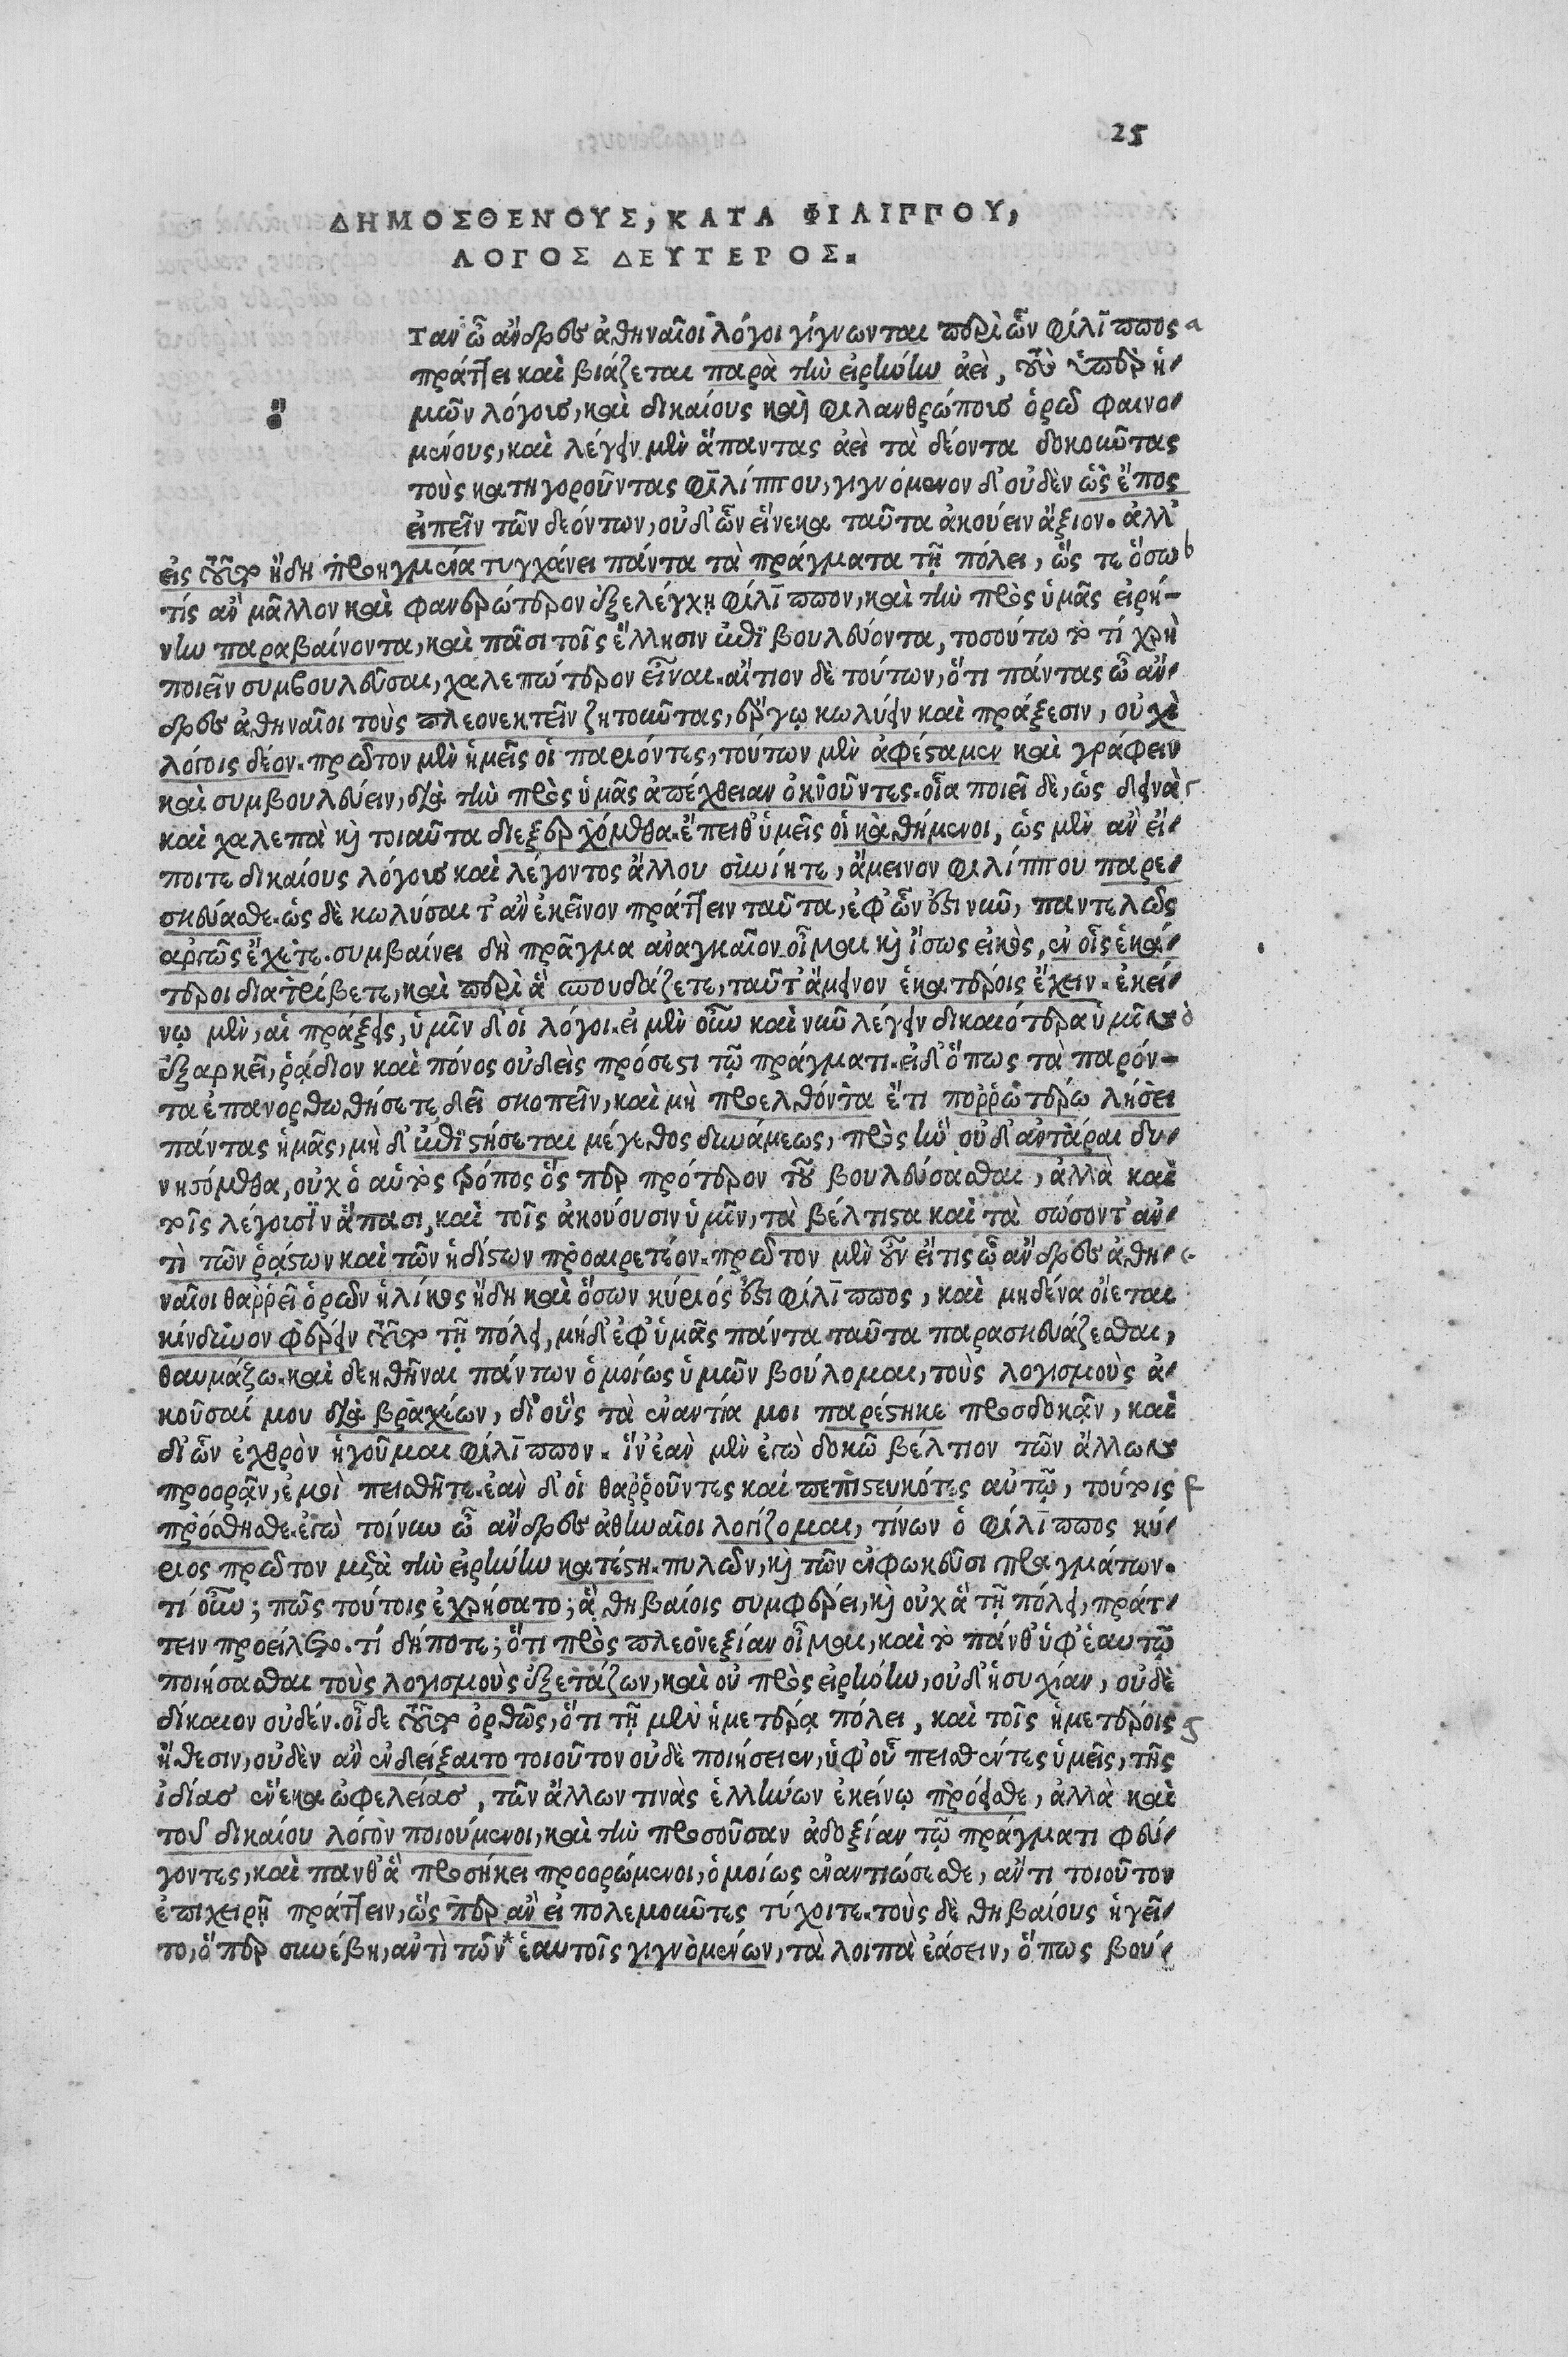 25
ΔΗΜΟΣΘΕΝΟΥΣ, ΚΑΤΑ ΦΙΛΙΠΠΟΥ,
ΛΟΓΟΣ ΔΕΥΤΕΡΟΣ.
ὅ Ταν ὦ ἄνδρες ἀθηναῖοι λόγοι γίγνωνται περὶ ὧν φίλιππος a
πράττει καὶ βιάζεται παρὰ τὴν εἰρήνην ἀεὶ, τοὺς ὑπὲρ ἡ-
μῶν λόγους, καὶ δικαίους καὶ φιλανθρώπους ὁρῶ φαινο-
μένους, καὶ λέγειν μὲν ἅπαντας ἀεὶ τὰ δέοντα δοκοῦντας
τοὺς κατηγοροῦντας φιλίππου, γιγνόμενον δ' οὐδὲν ὡς ἔπος
εἰπεῖν τῶν δεόντων, οὐδ' ὧν εἵνεκα ταῦτα ἀκούειν ἄξιον. ἀλλ'
εἰς τοῦτο ἤδη προηγμένα τυγχάνει πάντα τὰ πράγματα τῇ πόλει, ὥς τε ὅσω b
τίς ἂν μᾶλλον καὶ φανερώτερον ἐξελέγχῃ φίλιππον, καὶ τὴν πρὸς ὑμᾶς εἰρή-
νην παραβαίνοντα, καὶ πᾶσι τοῖς ἕλλησιν ἐπιβουλεύοντα, τοσούτω τὸ τί χρὴ
ποιεῖν συμβουλεῦσαι, χαλεπώτερον εἶναι. αἴτιον δὲ τούτων, ὅτι πάντας ὦ ἄν-
δρες ἀθηναῖοι τοὺς πλεονεκτεῖν ζητοῦντας, ἔργῳ κωλύειν καὶ πράξεσιν, οὐχὶ
λόγοις δέον. πρῶτον μὲν ἡμεῖς οἱ παριόντες, τούτων μὲν ἀφέσταμεν καὶ γράφειν
καὶ συμβουλεύειν, διὰ τὴν πρὸς ὑμᾶς ἀπέχθειαν ὀκνοῦντες. οἷα ποιεῖ δὲ, ὡς δεινὰ c
καὶ χαλεπὰ καὶ τοιαῦτα διεξερχόμεθα. ἔπειθ' ὑμεῖς οἱ καθήμενοι, ὡς μὲν ἂν εἴ-
ποιτε δικαίους λόγους καὶ λέγοντος ἄλλου συνίητε, ἄμεινον φιλίππου παρε-
σκεύασθε. ὡς δὲ κωλύσαιτ' ἂν ἐκεῖνον πράττειν ταῦτα, ἐφ' ὧν ἐστι νῦν, παντελῶς
ἀργῶς ἔχετε. συμβαίνει δὴ πρᾶγμα ἀναγκαῖον οἶμαι καὶ ἴσως εἰκὸς, ἐν οἷς ἑκά-
τεροι διατρίβετε, καὶ περὶ ἃ σπουδάζετε, ταῦτ' ἄμεινον ἑκατέροις ἔχειν. ἐκεί-
νῳ μὲν, αἱ πράξεις, ὑμῖν δ' οἱ λόγοι. εἰ μὲν οὖν καὶ νῦν λέγειν δικαιότερα ὑμῖν d
ἐξαρκεῖ, ῥᾴδιον καὶ πόνος οὐδεὶς πρόσεστι τῷ πράγματι. εἰ δ' ὅπως τὰ παρόν-
τα ἐπανορθωθήσετε δεῖ σκοπεῖν, καὶ μὴ προελθόντα ἔτι πορρωτέρω λήσει
πάντας ἡμᾶς, μὴ δ' ἐπιστήσεται μέγεθος δυνάμεως, πρὸς ἣν οὐδ' ἀντάραι δυ-
νησόμεθα, οὐχ ὁ αὐτὸς τρόπος ὅς περ πρότερον τοῦ βουλεύσασθαι, ἀλλὰ καὶ
τοῖς λέγουσϊν ἅπασι, καὶ τοῖς ἀκούουσιν ὑμῖν, τὰ βέλτιστα καὶ τὰ σώσοντ' ἀν-
τὶ τῶν ῥᾴστων καὶ τῶν ἡδίστων προαιρετέον. πρῶτον μὲν οὖν εἴ τις ὦ ἄνδρες ἀθη- e
ναῖοι θαρρεῖ ὁρῶν ἡλίκος ἤδη καὶ ὅσων κύριός ἐστι φίλιππος, καὶ μηδένα οἴεται
κίνδυνον φέρειν τοῦτο τῇ πόλει, μηδ' ἐφ' ὑμᾶς πάντα ταῦτα παρασκευάζεσθαι,
θαυμάζω. καὶ δεηθῆναι πάντων ὁμοίως ὑμῶν βούλομαι, τοὺς λογισμοὺς ἀ-
κοῦσαί μου διὰ βραχέων, δι' οὓς τὰ ἐναντία μοι παρέστηκε προσδοκᾷν, καὶ
δι' ὧν ἐχθρὸν ἡγοῦμαι φίλιππον. ἵν' ἐὰν μὲν ἐγὼ δοκῶ βέλτιον τῶν ἄλλων
προορᾷν, ἐμοὶ πεισθῆτε. ἐὰν δ' οἱ θαῤῥοῦντες καὶ πεπιστευκότες αὐτῷ, τούτοις f
πρόσθησθε. ἐγὼ τοίνυν ὦ ἄνδρες ἀθηναῖοι λογίζομαι, τίνων ὁ φίλιππος κύ-
ριος πρῶτον μετὰ τὴν εἰρήνην κατέστη. πυλῶν, καὶ τῶν ἐν φωκεῦσι πραγμάτων.
τί οὖν; πῶς τούτοις ἐχρήσατο; ἃ θηβαίοις συμφέρει, καὶ οὐχ ἃ τῇ πόλει, πράτ-
τειν προείλετο. τί δήποτε; ὅτι πρὸς πλεονεξίαν οἶμαι, καὶ τὸ πάνθ' ὑφ' ἑαυτῷ
ποιήσασθαι τοὺς λογισμοὺς ἐξετάζων, καὶ οὐ πρὸς εἰρήνην, οὐδ' ἡσυχίαν, οὐδὲ
δίκαιον οὐδέν. οἶδε τοῦτο ὀρθῶς, ὅτι τῇ μὲν ἡμετέρᾳ πόλει, καὶ τοῖς ἡμετέροις g
ἤθεσιν, οὐδὲν ἂν ἐνδείξαιτο τοιοῦτον οὐδὲ ποιήσειεν, ὑφ' οὗ πεισθέντες ὑμεῖς, τῆς
ἰδίας ἕνεκα ὠφελείας, τῶν ἄλλων τινὰς ἑλλήνων ἐκείνῳ πρόεισθε, ἀλλὰ καὶ
τοῦ δικαίου λόγον ποιούμενοι, καὶ τὴν προσοῦσαν ἀδοξίαν τῷ πράγματι φεύ-
γοντες, καὶ πανθ' ἃ προσήκει προορώμενοι, ὁμοίως ἐναντιώσεσθε, ἄν τι τοιοῦτον
ἐπιχειρῇ πράττειν, ὥς περ ἂν εἰ πολεμοῦντες τύχοιτε. τοὺς δὲ θηβαίους ἡγεῖ-
το, ὅ περ συνέβη, ἀντὶ τῶν* ἑαυτοῖς γιγνομένων, τὰ λοιπὰ ἐάσειν, ὅπως βού-